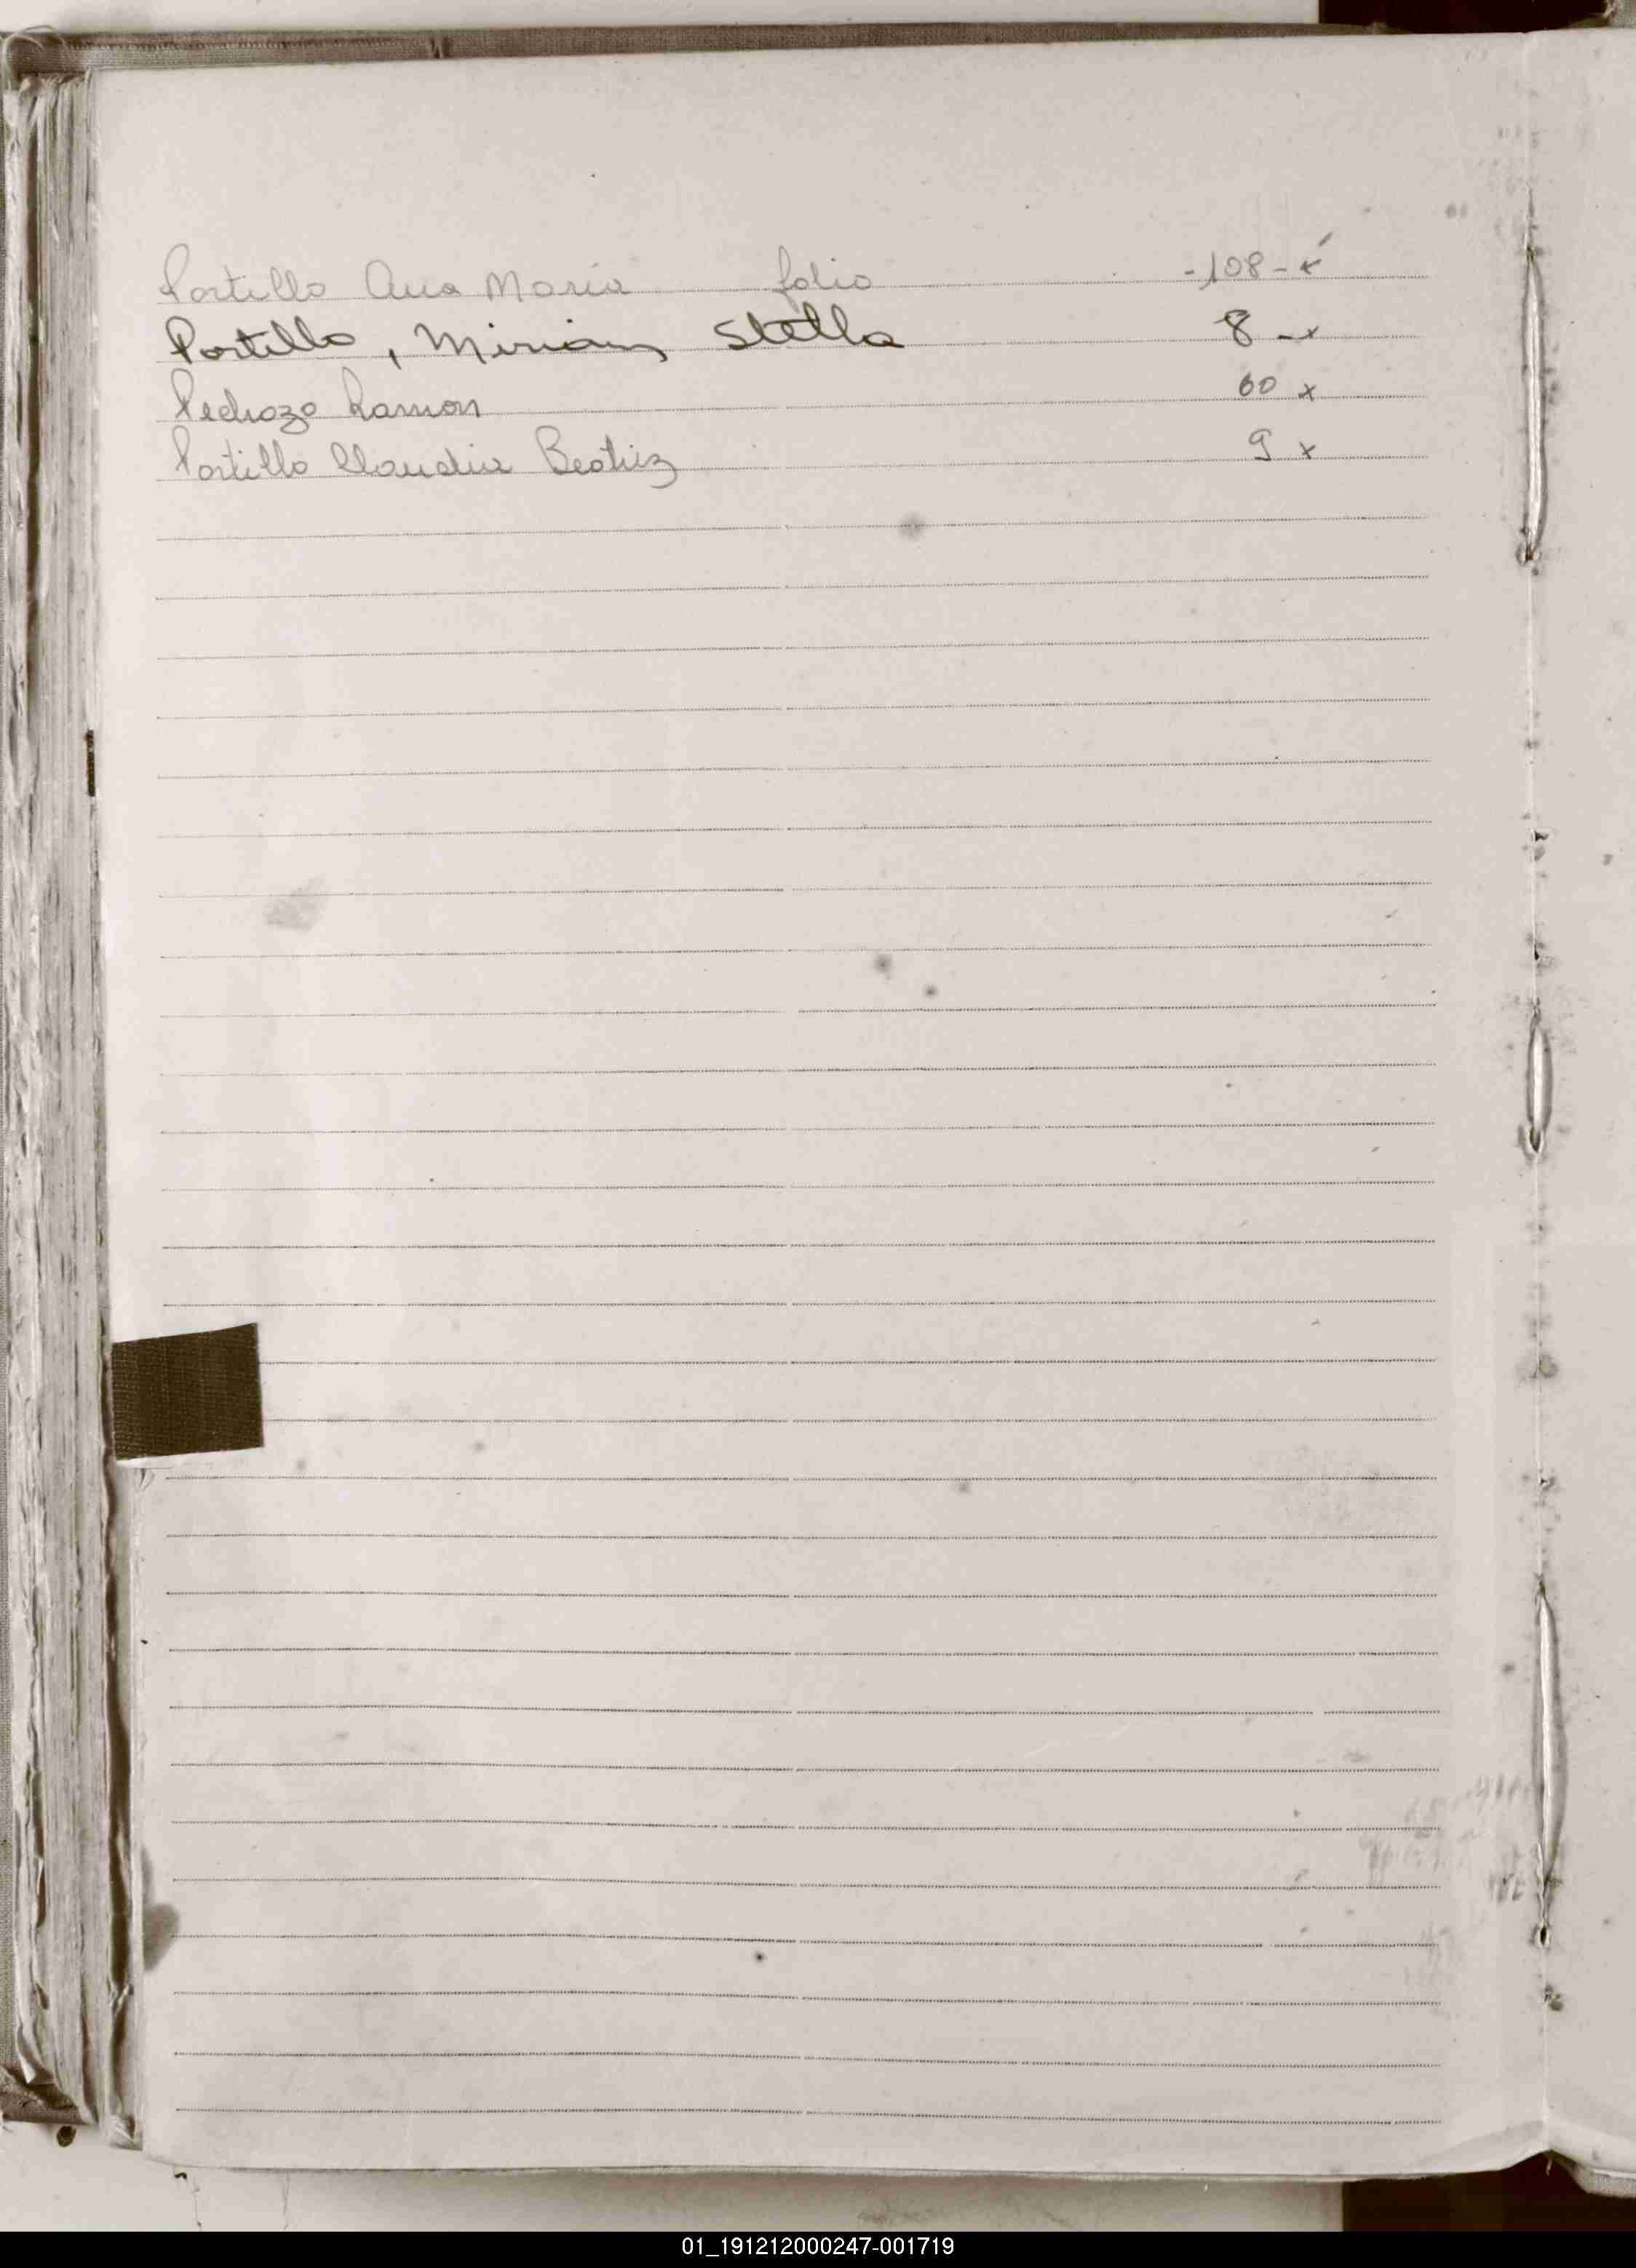 Portillo Ana María folio -108- x
Portillo, Mirian Stella 8 -x
Pedrozo Ramon 60 x
Portillo Claudia Beatriz 9 x
01_191212000247-001719